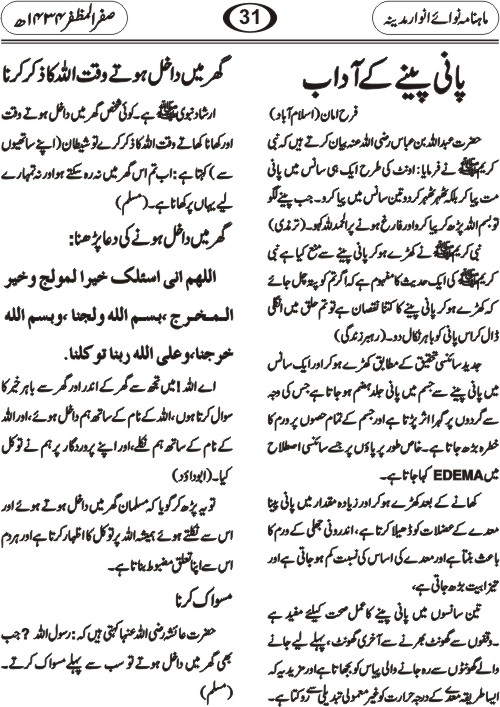 ماہنامہ نوائے انوار مدینہ
31
صفر المظفر ۱۴۳۴ھ
پانی پینے کے آداب
فرح امان (اسلام آباد)
حضرت عبداللہ بن عباس رضی اللہ عنہ بیان کرتے ہیں کہ نبی
کریم ﷺ نے فرمایا: اونٹ کی طرح ایک ہی سانس میں پانی
مت پیا کرو بلکہ ٹھہر ٹھہر کر دو تین سانس میں پیا کرو۔ جب پینے لگو
تو بسم اللہ پڑھ کر پیا کرو اور فارغ ہونے پر الحمد للہ کہو۔ (ترمذی)
نبی کریم ﷺ نے کھڑے ہو کر پانی پینے سے منع کیا ہے نبی
کریم ﷺ کی ایک حدیث کا مفہوم ہے کہ اگر تم کو پتہ چل جائے
کہ کھڑے ہو کر پانی پینے کا کتنا نقصان ہے تو تم حلق میں انگلی
ڈال کر اس پانی کو باہر نکال دو۔ (رہبر زندگی)
جدید سائنسی تحقیق کے مطابق کھڑے ہو کر اور ایک سانس
میں پانی پینے سے جسم میں پانی جلد ہضم ہو جاتا ہے جس کی وجہ
سے گردوں پر گہرا اثر پڑتا ہے اور جسم کے تمام حصوں پر ورم کا
خطرہ بڑھ جاتا ہے۔ خاص طور پر پاؤں پر جسے سائنسی اصطلاح
میں EDEMA کہا جاتا ہے۔
کھانے کے بعد کھڑے ہو کر اور زیادہ مقدار میں پانی پینا
معدے کے عضلات کو ڈھیلا کرتا ہے، اندرونی جھلی کے ورم کا
باعث بنتا ہے اور معدے کی اساس کی نسبت کم ہو جاتی ہے اور
تیزابیت بڑھ جاتی ہے،
تین سانسوں میں پانی پینے کا عمل صحت کیلئے مفید ہے
۔ وقفوں سے گھونٹ بھرنے سے آخری گھونٹ، پہلے لیے جانے
والے گھونٹوں سے رہ جانے والی پیاس کو بجھاتا ہے اور مزید یہ کہ
ایسا طریقہ معدے کے درجہ حرارت کو غیر معمولی تبدیلی سے روکتا ہے۔
گھر میں داخل ہوتے وقت اللہ کا ذکر کرنا
ارشاد نبوی ﷺ ہے۔ کوئی شخص گھر میں داخل ہوتے وقت
اور کھانا کھاتے وقت اللہ کا ذکر کرے تو شیطان (اپنے ساتھیوں
سے) کہتا ہے: اب تم اس گھر میں نہ رہ سکتے ہو اور نہ تمہارے
لیے یہاں پر کھانا ہے۔ (مسلم)
گھر میں داخل ہونے کی دعا پڑھنا:
اللهم انی اسئلک خیرا لمولج و خیر
المخرج، بسم الله ولجنا، وبسم الله
خرجنا، وعلی الله ربنا توکلنا.
اے اللہ! میں تجھ سے گھر کے اندر اور گھر سے باہر خیر کا
سوال کرتا ہوں، اللہ کے نام کے ساتھ ہم داخل ہوئے، اور اللہ
کے نام کے ساتھ ہم نکلے، اور اپنے پروردگار پر ہم نے توکل
کیا۔ (ابوداؤد)
تو یہ پڑھ کر گویا کہ مسلمان گھر میں داخل ہوتے ہوئے اور
اس سے نکلتے ہوئے ہمیشہ اللہ پر توکل کا اظہار کرتا ہے اور ہر دم
اس سے اپنا تعلق مضبوط بناتا ہے۔
مسواک کرنا
حضرت عائشہ رضی اللہ عنہا کہتی ہیں کہ: رسول اللہ ? جب
بھی گھر میں داخل ہوتے تو سب سے پہلے مسواک کرتے۔
(مسلم)